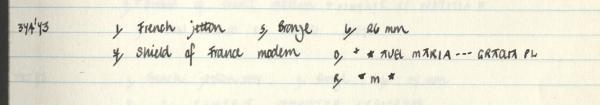 344'43 1, French jetton 3, Bronze 6, 26 mm
4, Shield of France modern 0, * * AVEI MARIA --- GRACIA PL
R, * m *